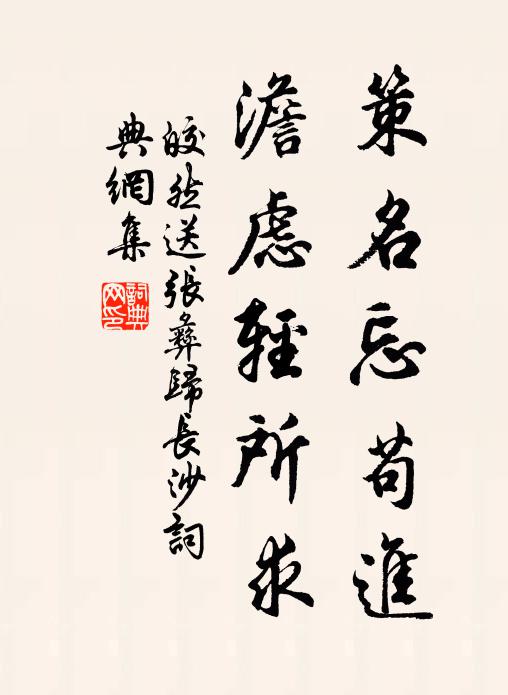 策名忘苟進
澹慮輕所求
皎然送張彝歸長沙詞
典網集
詞典網印